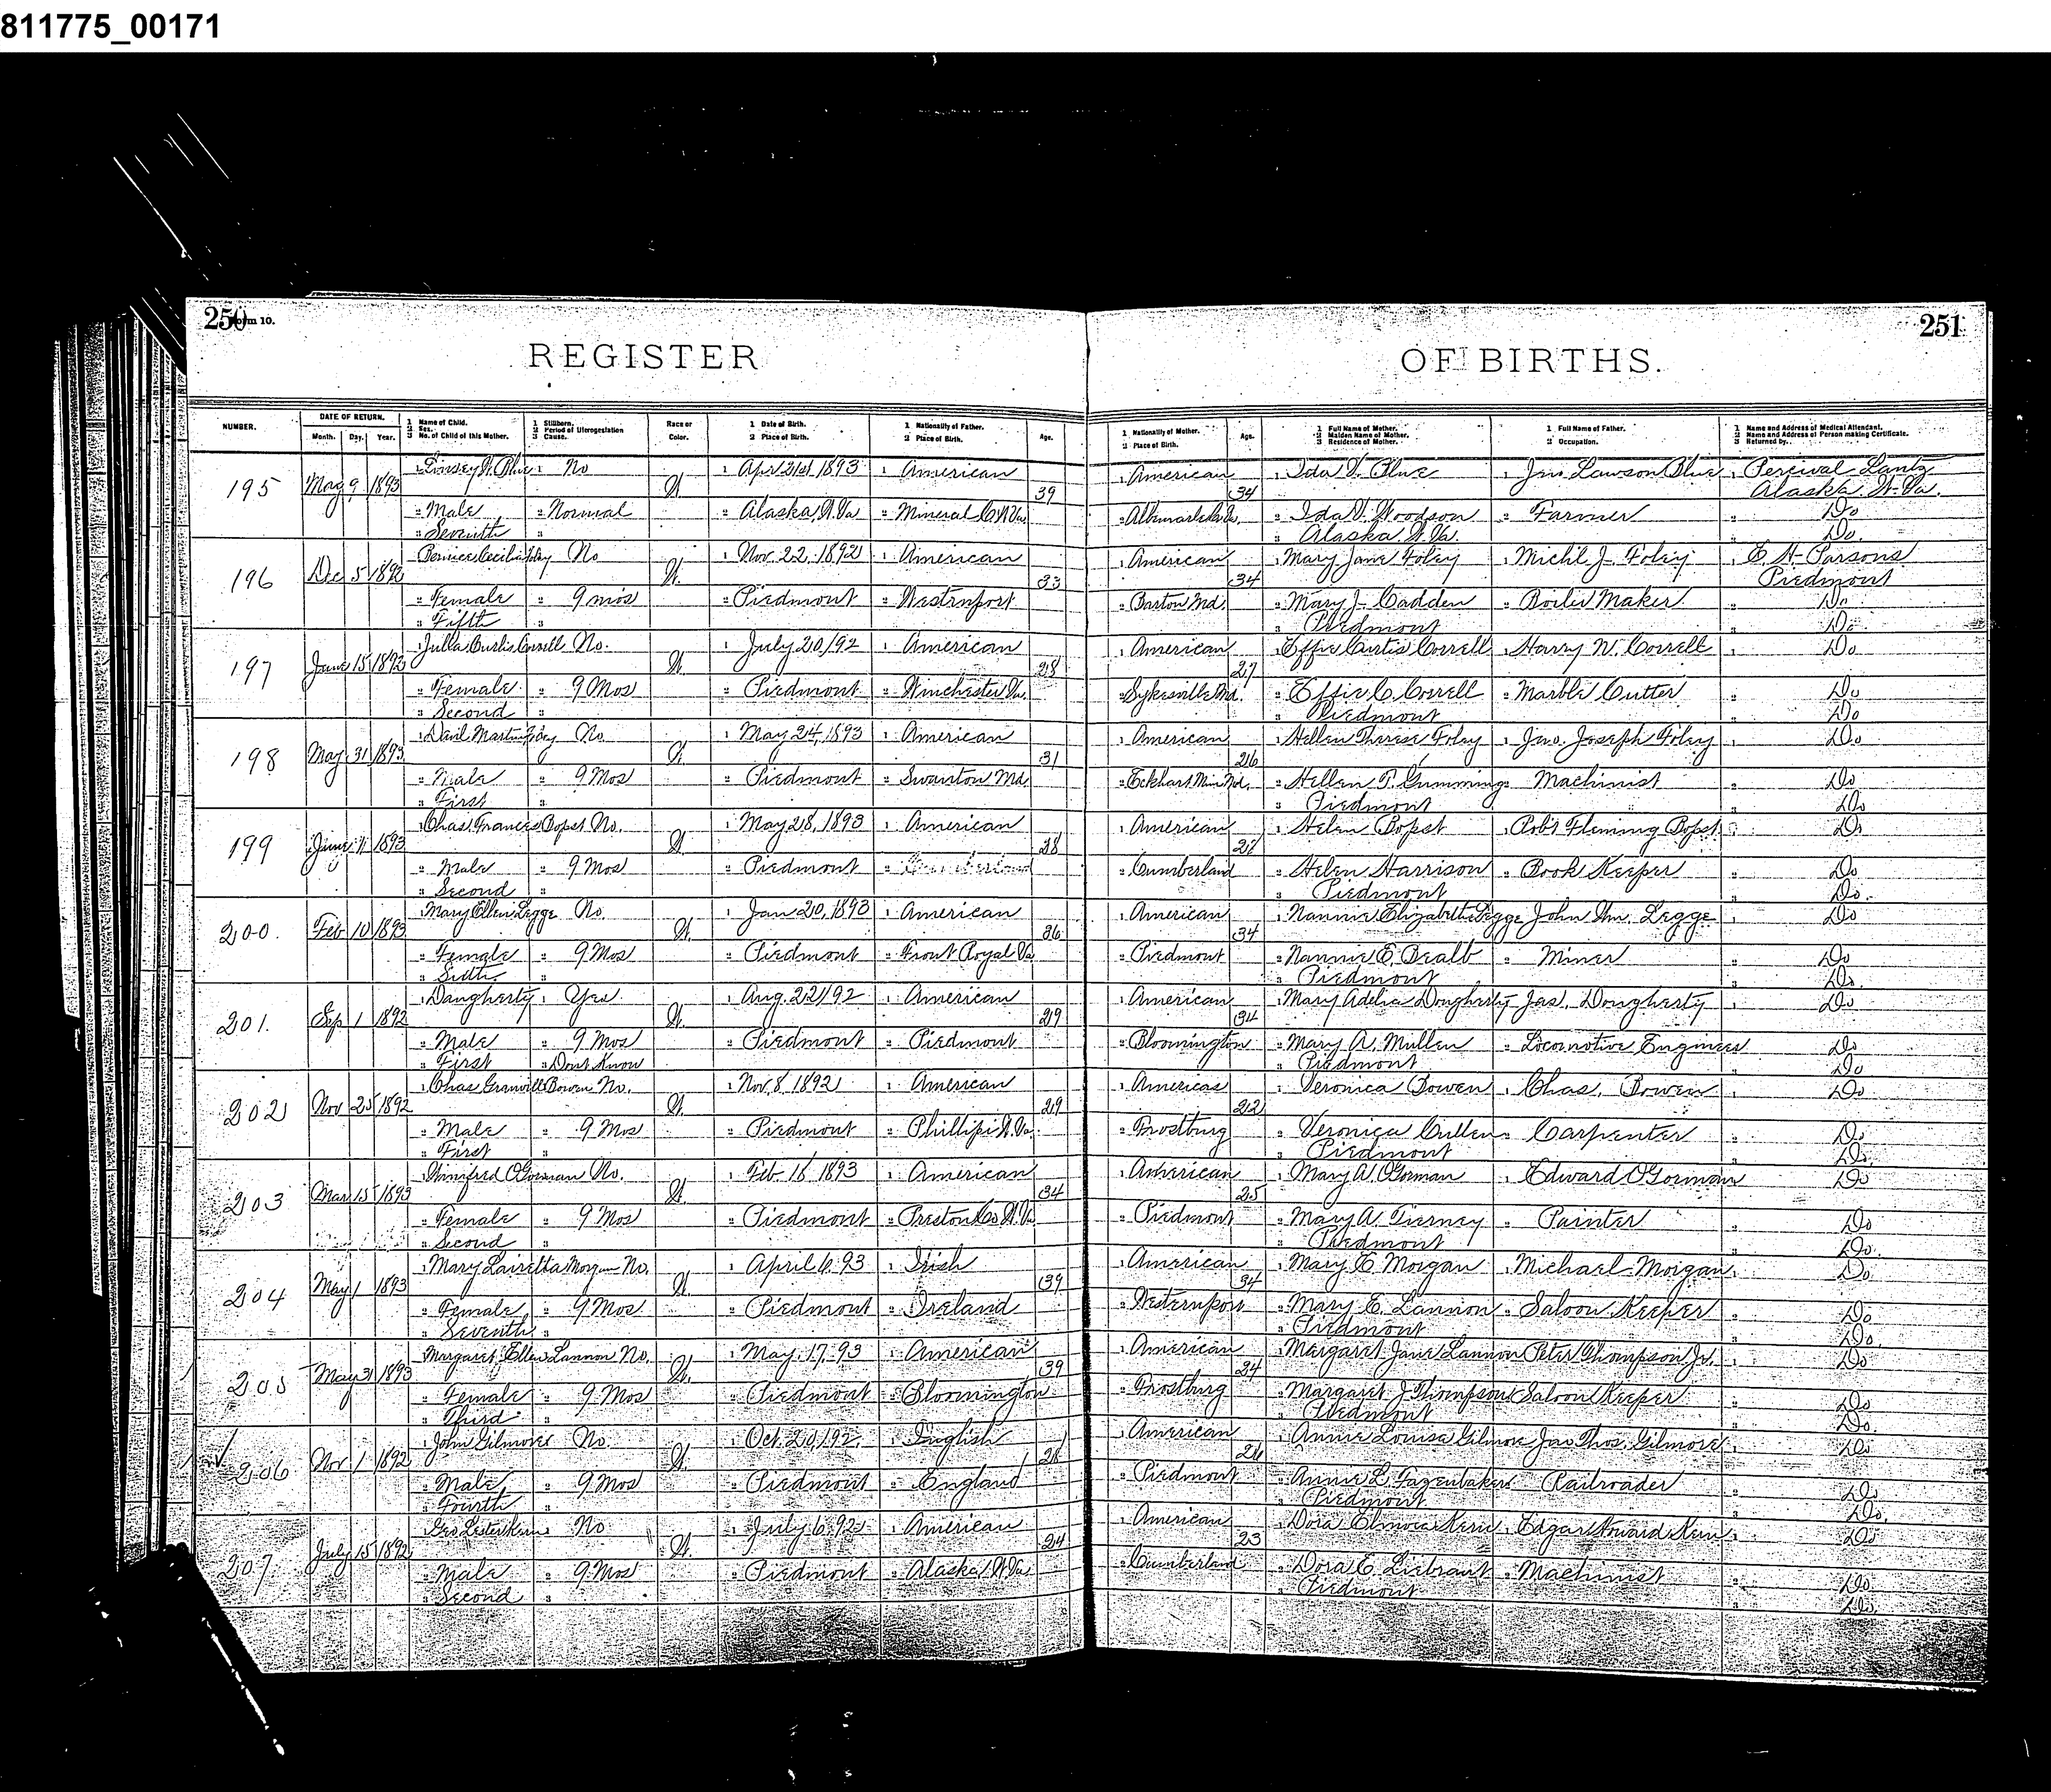 811775_00171
250 Form 10.
251
REGISTER OF BIRTHS.
NUMBER.
DATE OF RETURN.
Month. Day. Year.
1 Name of Child.
2 Sex.
3 No. of Child of this Mother.
1 Stillborn.
2 Period of Uterogestation
3 Cause.
Race or Color.
1 Date of Birth.
2 Place of Birth.
1 Nationality of Father.
2 Place of Birth.
Age.
1 Nationality of Mother.
2 Place of Birth.
Age.
1 Full Name of Mother.
2 Maiden Name of Mother.
3 Residence of Mother.
1 Full Name of Father.
2 Occupation.
1 Name and Address of Medical Attendant.
2 Name and Address of Person making Certificate.
3 Returned by..
1 Linsey W. Blue 1 No 1 Apr 21st 1893 1 American 1 American 1 Ida V. Blue 1 Jno Lawson Blue 1 Percival Lantz
195 May 9 1893 W 39 34 Alaska W. Va.
2 Male 2 Normal 2 Alaska, W. Va 2 Mineral Co W Va 2 Albemarle Co Va. 2 Ida V. Woodson 2 Farmer 2 Do
3 Seventh 3 3 Alaska W. Va. 3 Do.
Bernice Cecilia Foley No 1 Nov. 22. 1892 1 American 1 American 1 Mary Jane Foley 1 Michl J. Foley 1 E. H. Parsons
196 Dec 5 1892 W. 33 34 Piedmont
2 Female 2 9 mos 2 Piedmont 2 Westernport 2 Barton Md. 2 Mary J. Cadden 2 Boiler Maker 2 Do
3 Fifth 3 3 Piedmont 3 Do.
1 Julia Curtis Correll No. 1 July 20/92 1 American 1 American 1 Effie Curtis Correll 1 Harry N. Correll 1 Do
197 June 15 1892 W. 28 27
2 Female 2 9 Mos 2 Piedmont 2 Winchester Va. 2 Sykesville Md. 2 Effie C. Correll 2 Marble Cutter 2 Do
3 Second 3 3 Piedmont 3 Do
1 David Martin Foley No. 1 May 24, 1893 1 American 1 American 1 Hellen Therese Foley 1 Jno. Joseph Foley 1 Do
198 May 31 1893 W. 31 26
2 Male 2 9 Mos 2 Piedmont 2 Swanton Md. 2 Eckhart Mines Md. 2 Hellen T. Gumming 2 Machinist 2 Do
3 First 3 3 Piedmont 3 Do
1 Chas. Frances Bopst No. 1 May 28, 1893 1 American 1 American 1 Helen Bopst 1 Robt Fleming Bopst 1 Do
199 June 1893 W. 28 27
2 Male 2 9 Mos 2 Piedmont 2 Cumberland 2 Cumberland 2 Helen Harrison 2 Book Keeper 2 Do
3 Second 3 3 Piedmont 3 Do.
Mary Ellen Legge No. 1 Jan 20, 1893 1 American 1 American 1 Nannie Elizabeth Legge John Wm. Legge 1 Do
200. Feb 10 1893 W. 36 34
2 Female 2 9 Mos 2 Piedmont 2 Front Royal Va 2 Piedmont 2 Nannie E. Bealb 2 Miner 2 Do
3 Sixth 3 3 Piedmont 3 Do.
1 Daugherty 1 Yes. 1 Aug. 22/92 1 American 1 American 1 Mary Adelia Dougherty Jas. Dougherty 1 Do
201. Sep 1 1892 W. 29 34
2 Male 2 9 Mos 2 Piedmont 2 Piedmont 2 Bloomington 2 Mary A. Mullen 2 Locomotive Engineer 2 Do
3 First 3 Dont Know 3 Piedmont 3 Do
1 Chas Granville Bowen No. 1 Nov. 8, 1892 1 American 1 American 1 Veronica Bowen 1 Chas. Bowen 1 Do
202 Nov 25 1892 W. 29 22
2 Male 2 9 Mos 2 Piedmont 2 Phillipi W. Va. 2 Frostburg 2 Veronica Cullen 2 Carpenter 2 Do
3 First 3 3 Piedmont 3 Do.
1 Winnifred O'Gorman No. 1 Feb. 16 1893 1 American 1 American 1 Mary A. O'Gorman 1 Edward O'Gorman 1 Do
203 Mar 15 1893 W. 34 25
2 Female 2 9 Mos 2 Piedmont 2 Preston Co W. Va 2 Piedmont 2 Mary A. Tierney 2 Painter 2 Do
3 Second 3 3 Piedmont 3 Do.
1 Mary Lauretta Morgan No. 1 April 6, 93 1 Irish 1 American 1 Mary E Morgan 1 Michael Morgan 1 Do
204 May 1 1893 W. 39 34
2 Female 2 9 Mos 2 Piedmont 2 Ireland 2 Westernport 2 Mary E. Lannon 2 Saloon Keeper 2 Do
3 Seventh 3 3 Piedmont 3 Do.
Margaret Ellen Lannon No. 1 May. 17. 93 1 American 1 American 1 Margaret Jane Lannon Peter Thompson Jr. 1 Do
205 May 31 1893 W. 39 24
2 Female 2 9 Mos 2 Piedmont 2 Bloomington 2 Frostburg 2 Margaret J Thompson Saloon Keeper 2 Do
3 Third 3 3 Piedmont 3 Do.
1 John Gilmore No. 1 Oct. 20/92. 1 English 1 American 1 Annie Louisa Gilmore Jas Thos. Gilmore 1 Do
206 Nov 1 1892 W. 28 26
2 Male 2 9 Mos 2 Piedmont 2 England 2 Piedmont 2 Annie L. Fazenbaker 2 Railroader 2 Do
3 Fourth 3 3 Piedmont 3 Do.
1 Geo Lester Kern No 1 July 6. 92 1 American 1 American 1 Dora Elmora Kern 1 Edgar Howard Kern 1 Do
207 July 15 1892 W. 24 23
2 Male 2 9 Mos 2 Piedmont 2 Alaska W. Va. 2 Cumberland 2 Dora E. Liebrant 2 Machinist 2 Do
3 Second 3 3 Piedmont 3 Do.